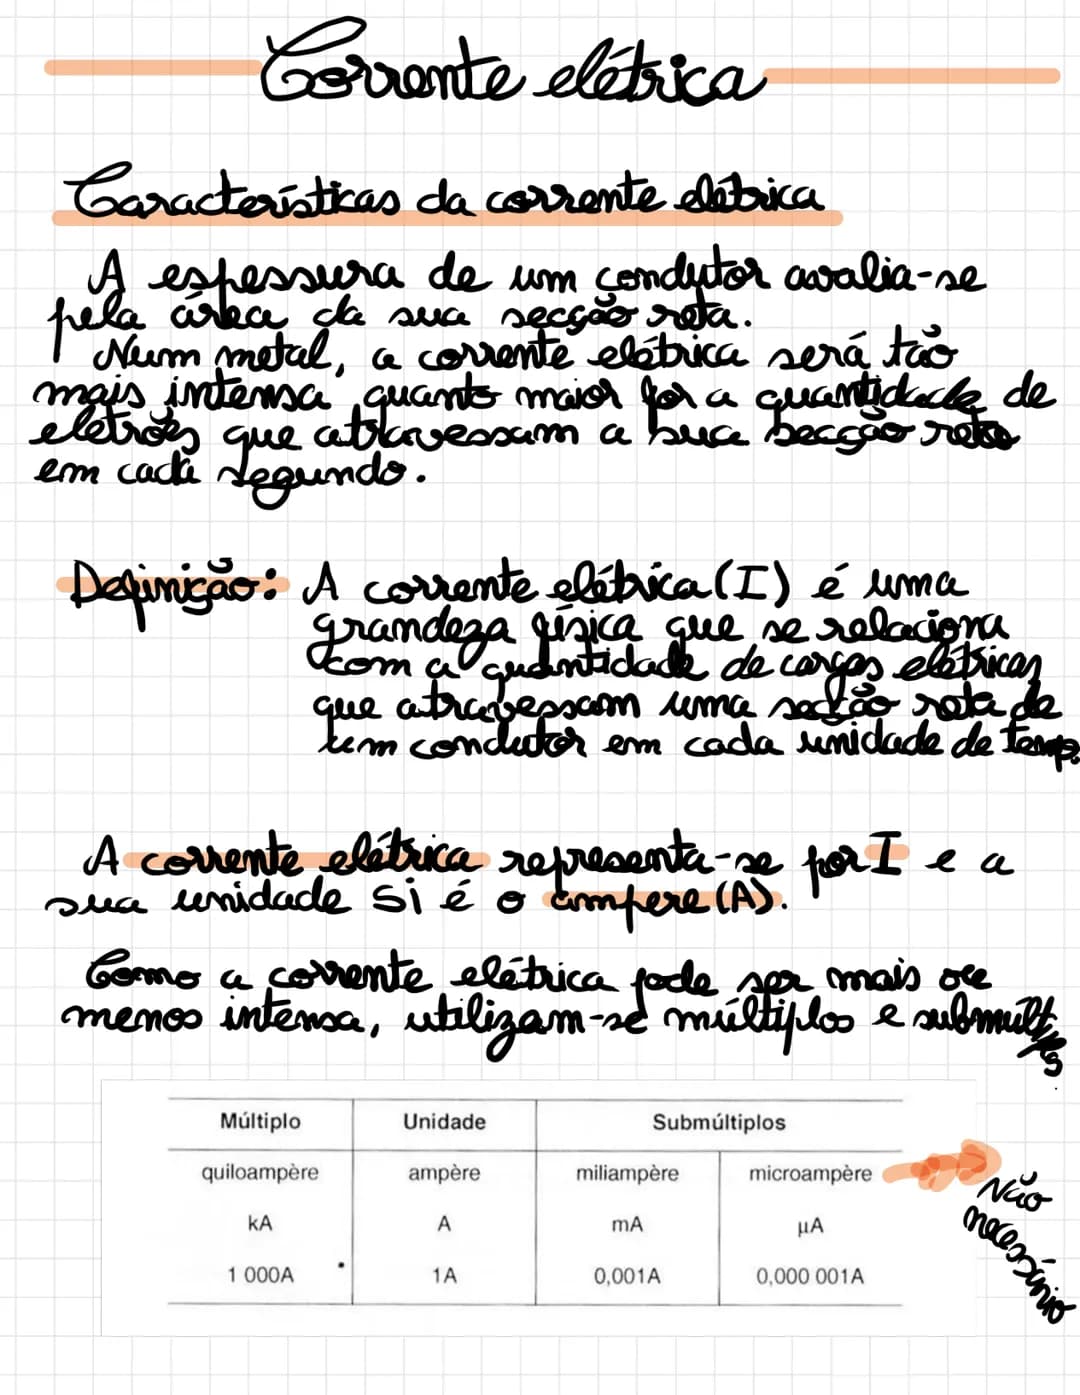 Corrente elétrica
Características da corrente elétrica
A espessura de um condutor avalia-se
pela área da sua secção reta.
Num metal, a corrente elétrica será tão
mais intensa quanto maior for a quantidade de
eletrões que atravessam a sua secção reta
em cada segundo.
Definição: A corrente elétrica (I) é uma
grandeza física que se relaciona
com a quantidade de cargas elétricas
que atravessam uma secção reta de
um condutor em cada unidade de tempo.
A corrente elétrica representa-se por I e a
sua unidade SI é o ampere (A).
Como a corrente elétrica pode ser mais ou
menos intensa, utilizam-se múltiplos e submúltiplos.
Múltiplo Unidade Submúltiplos
quiloampère ampère miliampère microampère
kA A mA µA
1 000A 1A 0,001A 0,000 001A
Não
necessário